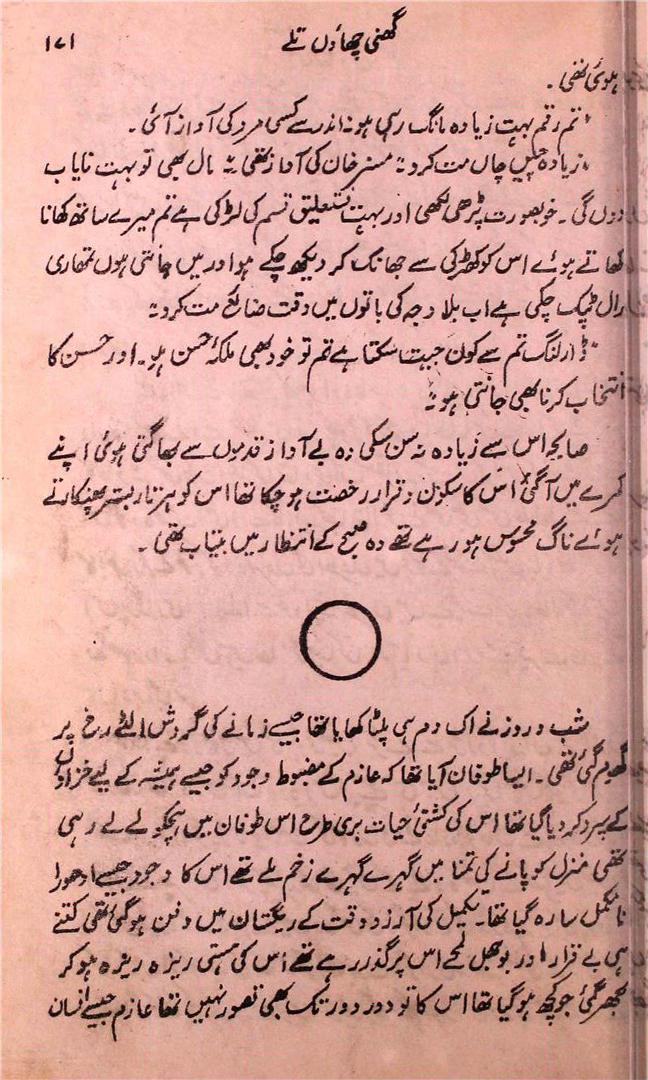 گھنی چھاؤں تلے
۱۷۱
ہوئی تھی۔
"تم رقم بہت زیادہ مانگ رہی ہو" اندر سے کسی مرد کی آواز آئی۔
"زیادہ چیں چاں مت کرو" مسز خان کی آواز تھی "مال بھی تو بہت نایاب
دوں گی۔ خوبصورت پڑھی لکھی اور بہت نستعلیق قسم کی لڑکی ہے تم میرے ساتھ کھانا
کھاتے ہوئے اس کو کھڑکی سے جھانک کر دیکھ چکے ہو اور میں جانتی ہوں تمھاری
رال ٹپک چکی ہے اب بلا وجہ کی باتوں میں وقت ضائع مت کرو"
"ڈارلنگ تم سے کون جیت سکتا ہے تم تو خود بھی ملکۂ حسن ہو۔ اور حسن کا
انتخاب کرنا بھی جانتی ہو"
صابحہ اس سے زیادہ نہ سن سکی وہ بے آواز قدموں سے بھاگتی ہوئی اپنے
کمرے میں آ گئی اس کا سکون و قرار رخصت ہو چکا تھا اس کو ہر تار بستر پھنکارتے
ہوئے ناگ محسوس ہو رہے تھے وہ صبح کے انتظار میں بیتاب تھی۔
شب و روز نے اک دم ہی پلٹا کھایا تھا جیسے زمانے کی گردش الٹے رخ پر
گھوم گئی تھی۔ ایسا طوفان آیا تھا کہ عازم کے مضبوط وجود کو جیسے ہمیشہ کے لیے خزاؤں
کے سپرد کر دیا گیا تھا اس کی کشتیٔ حیات بری طرح اس طوفان میں ہچکولے لے رہی
تھی منزل کو پانے کی تمنا میں گہرے گہرے زخم ملے تھے اس کا وجود جیسے ادھورا
نامکمل سا رہ گیا تھا۔ تکمیل کی آرزو وقت کے ریگستان میں دفن ہو گئی تھی کتنے
ہی بے قرار اور بوجھل لمحے اس پر گذر رہے تھے اس کی ہستی ریزہ ریزہ ہو کر
بکھر گئی جو کچھ ہو گیا تھا اس کا تو دور دور تک بھی تصور نہیں تھا عازم جیسے انسان